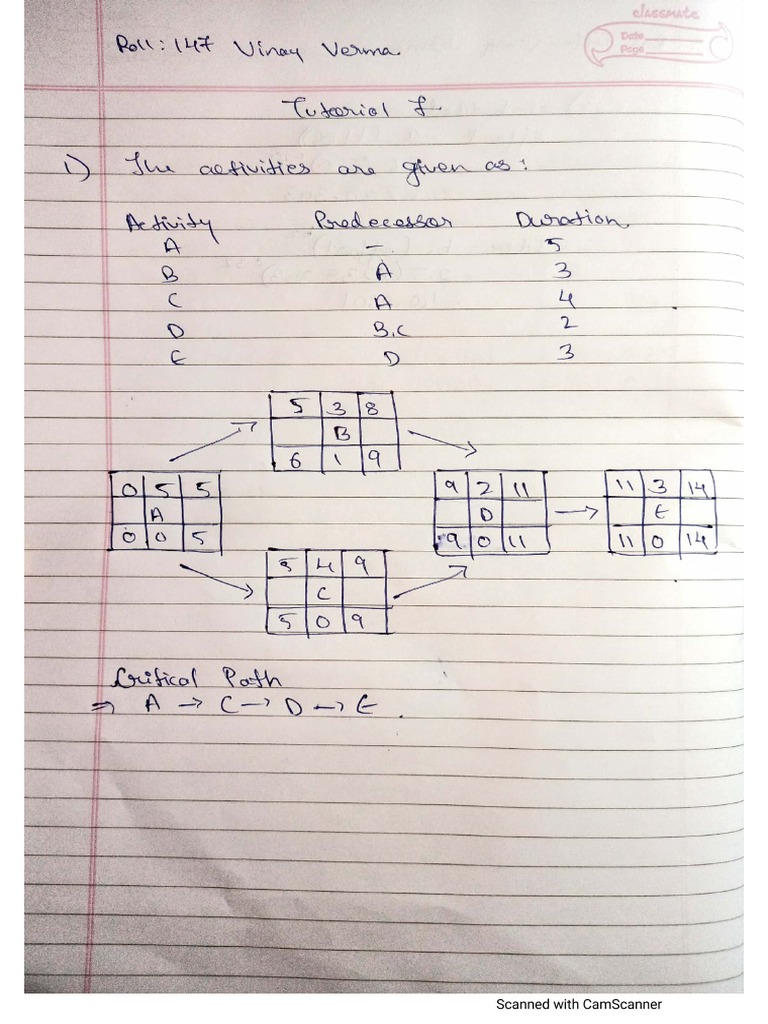 classmate
Date
Page
Roll: 147 Vinay Verma
Tutorial 7
1) The activities are given as:
Activity Predecessor Duration
A – 5
B A 3
C A 4
D B,C 2
E D 3
5 3 8
B
6 1 9
0 5 5
A
0 0 5
9 2 11
D
9 0 11
11 3 14
E
11 0 14
5 4 9
C
5 0 9
Critical Path
⇒ A → C → D → E .
Scanned with CamScanner